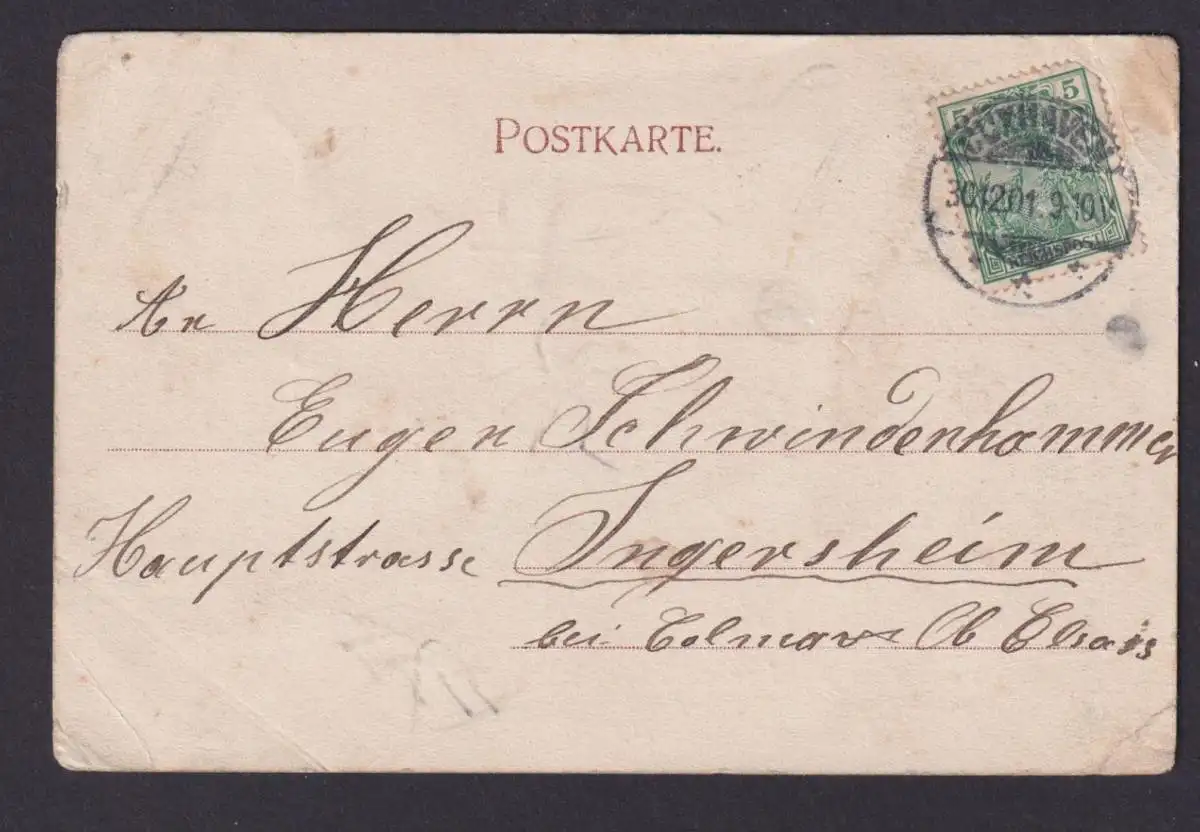 POSTKARTE.
5 5
CUXHAVEN
30.12.01. 9-10N
REICHSPOST
An Herrn
Eugen Schwindenhammer
Hauptstrasse Ingersheim
bei Colmar Ob Elsass